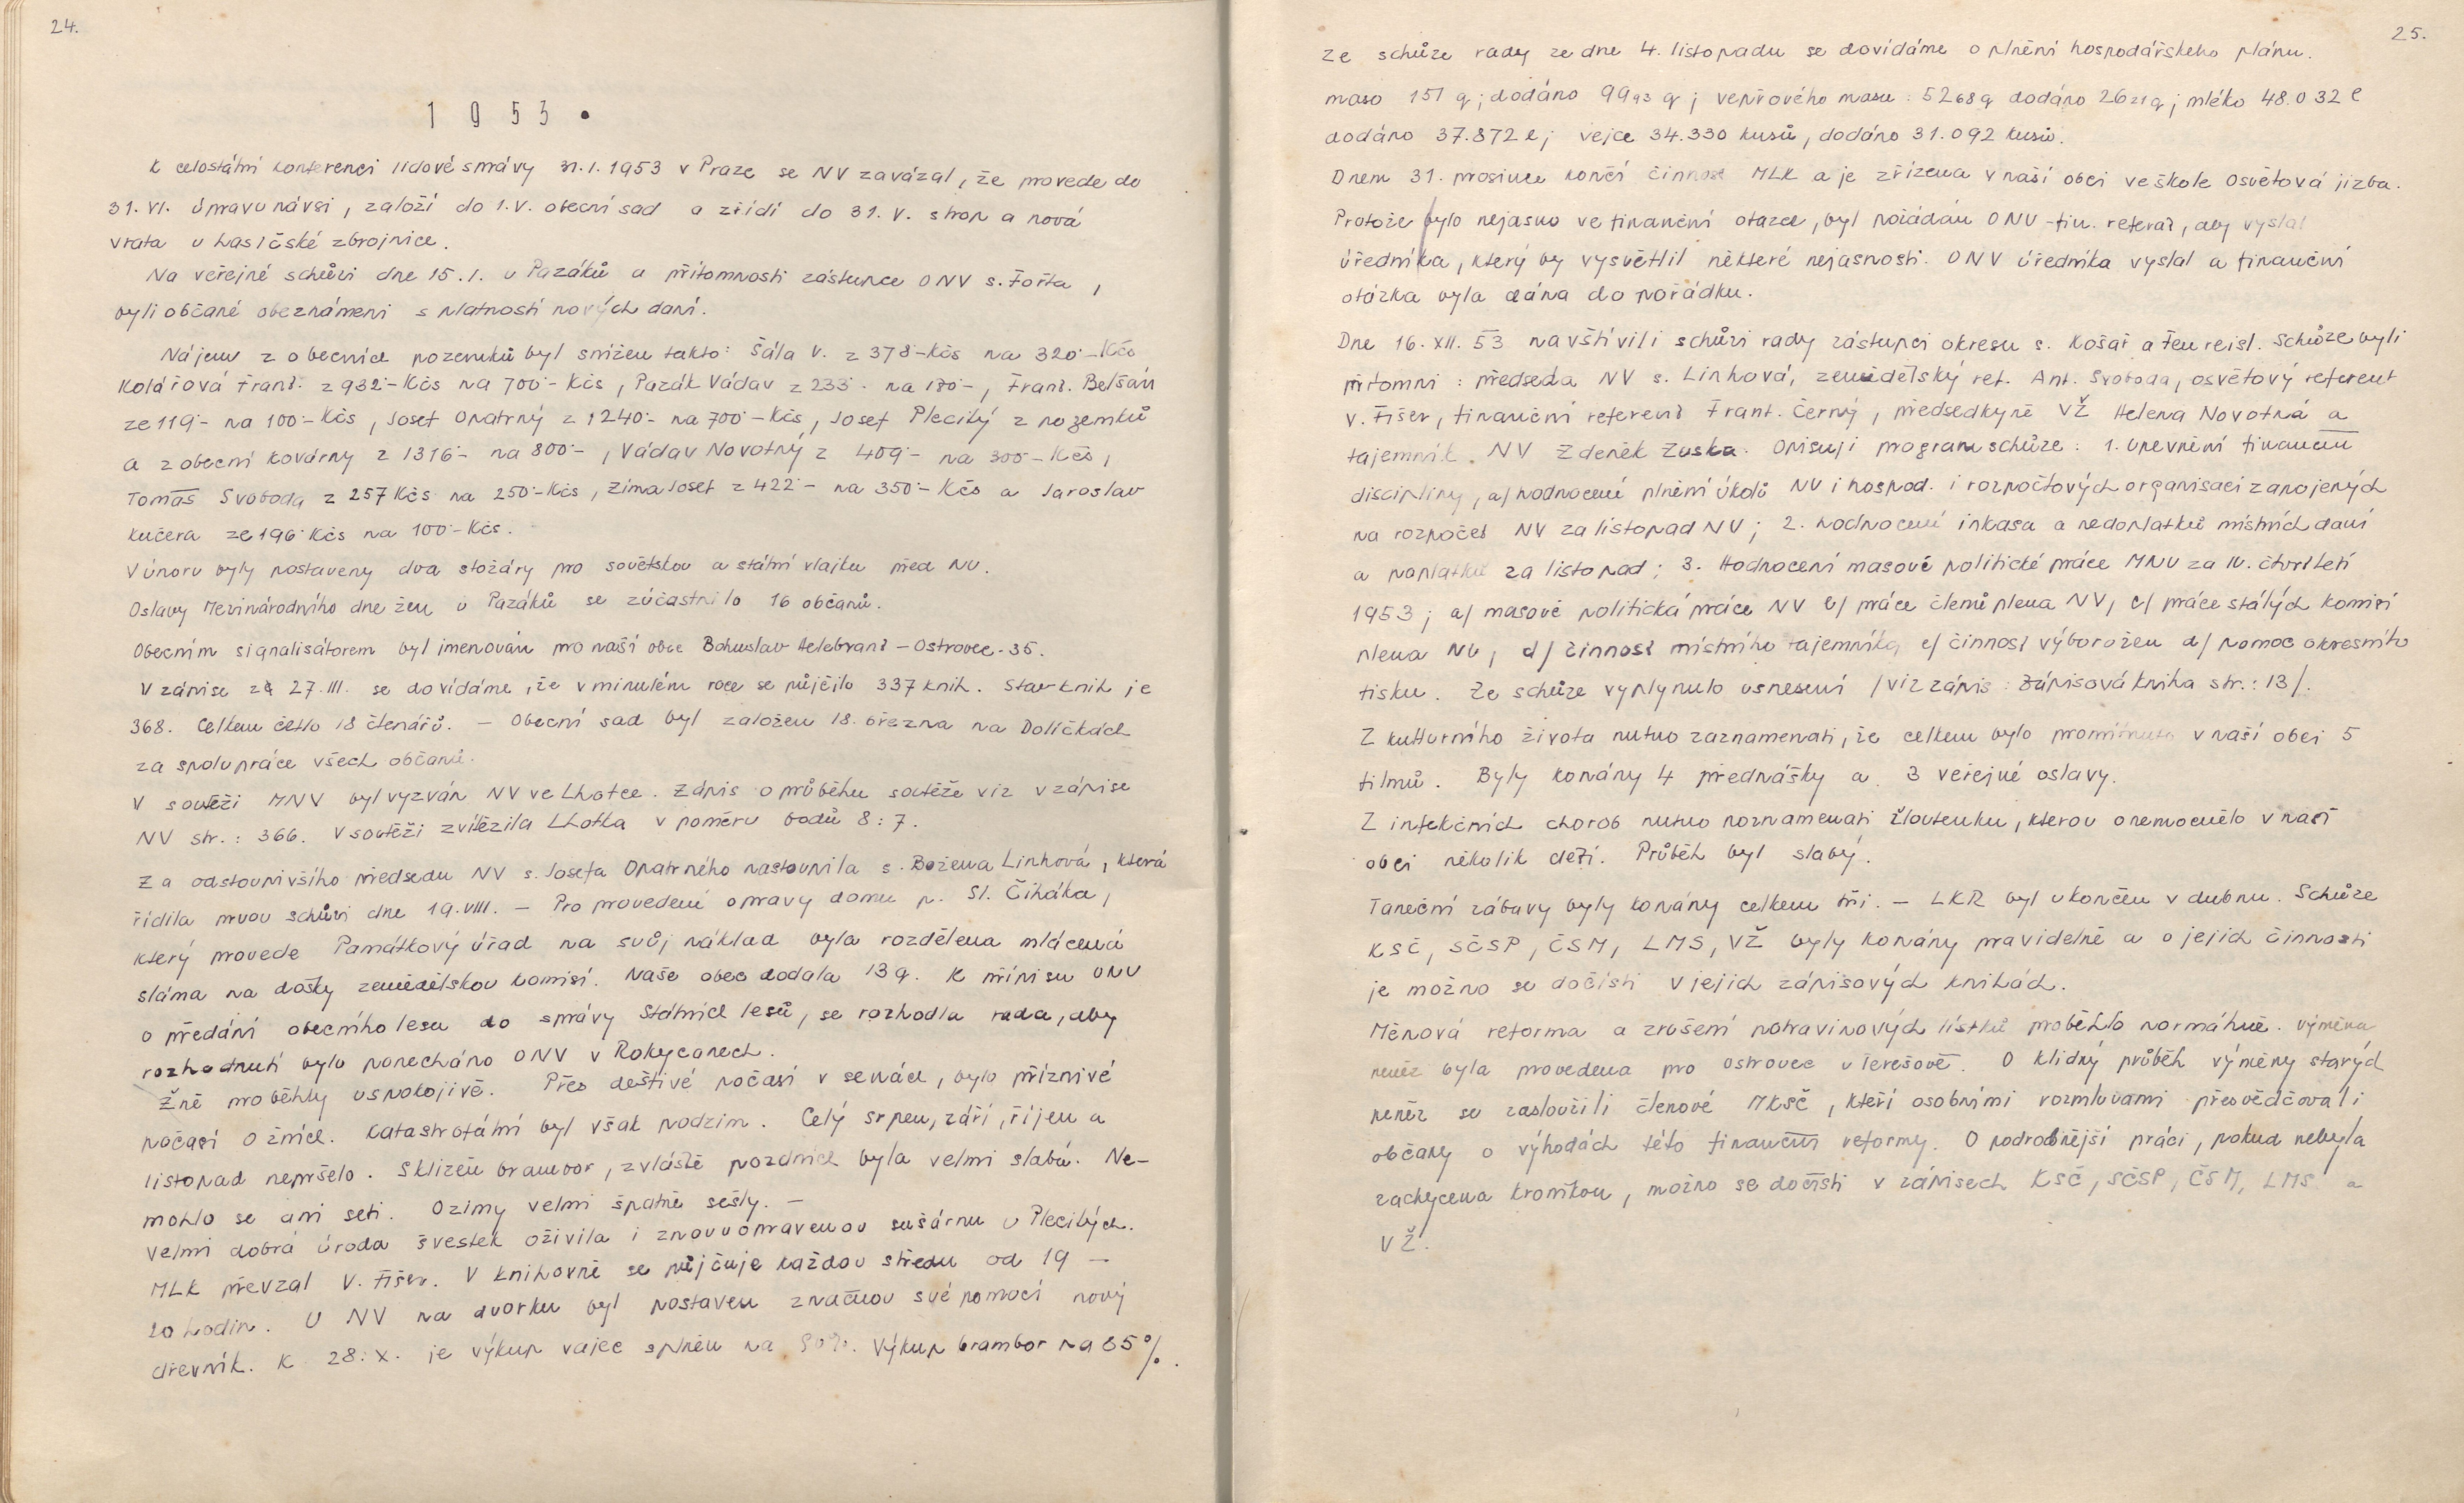 24.
1 9 5 3 .
K celostátní konferenci lidové správy 31.1.1953 v Praze se NV zavázal, že provede do
31. VI. úpravu návsi, založí do 1.V. obecní sad a zřídí do 31. V. strop a nová
vrata u hasičské zbrojnice.
Na veřejné schůzi dne 15.1. u Pazáků a přítomnosti zástupce ONV s. Fořta,
byli občané obeznámeni s platností nových daní.
Nájem z obecních pozemků byl snížen takto: Šála V. z 378·-Kčs na 320·-Kčs
Kolářová Frant. z 932·-Kčs na 700·-Kčs, Pazák Václav z 233·- na 180·-, Frant. Belšán
ze 119·- na 100·-Kčs, Josef Opatrný z 1240·- na 700·-Kčs, Josef Plecitý z pozemků
a z obecní kovárny z 1316·- na 800·-, Václav Novotný z 409·- na 300·-Kčs,
Tomáš Svoboda z 257 Kčs na 250·-Kčs, Zíma Josef z 422·- na 350·-Kčs a Jaroslav
Kučera ze 196 Kčs na 100·-Kčs.
V únoru byly postaveny dva stožáry pro sovětskou a státní vlajku před NV.
Oslavy Mezinárodního dne žen u Pazáků se zúčastnilo 16 občanů.
Obecním signalisátorem byl jmenován pro naši obec Bohuslav Helebrant - Ostrovec-35.
V zápise za 27.III. se dovídáme, že v minulém roce se půjčilo 337 knih. Stav knih je
368. Celkem četlo 18 čtenářů. - Obecní sad byl založen 18. března na Dolíčkách
za spolupráce všech občanů.
V soutěži MNV byl vyzván NV ve Lhotce. Zápis o průběhu soutěže viz v zápise
NV str.: 366. V soutěži zvítězila Lhotka v poměru bodů 8:7.
Za odstoupivšího předsedu NV s. Josefa Opatrného nastoupila s. Božena Linhová, která
řídila prvou schůzi dne 19.VIII. - Pro provedení opravy domu p. St. Čiháka,
který provede Památkový úřad na svůj náklad byla rozdělena mlácená
sláma na došky zemědělskou komisí. Naše obec dodala 13 q. K přípisu ONV
o předání obecního lesa do správy Státních lesů, se rozhodla rada, aby
rozhodnutí bylo ponecháno ONV v Rokycanech.
Žně proběhly uspokojivě. Přes deštivé počasí v senách, bylo příznivé
počasí o žních. Katastrofální byl však podzim. Celý srpen, září, říjen a
listopad nepršelo. Sklizeň brambor, zvláště pozdních byla velmi slabá. Ne-
mohlo se ani seti. Ozimy velmi špatně sešly. -
Velmi dobrá úroda švestek oživila i znovuopravenou sušárnu u Plecitých.
MLK převzal V. Fišer. V knihovně se půjčuje každou středu od 19 -
20 hodin. U NV na dvorku byl postaven značnou svépomocí nový
dřevník. K 28.X. je výkup vajec splněn na 90%. Výkup brambor na 85%.
25.
Ze schůze rady ze dne 4. listopadu se dovídáme o plnění hospodářského plánu.
maso 151 q; dodáno 99 93 q; vepřového masa: 52 68 q dodáno 26 21 q; mléko 48.032 l
dodáno 37.872 l; vejce 34.330 kusů, dodáno 31.092 kusů.
Dnem 31. prosince končí činnost MLK a je zřízena v naší obci ve škole Osvětová jizba.
Protože bylo nejasno ve finanční otázce, byl požádán ONV-fin. referát, aby vyslal
úředníka, který by vysvětlil některé nejasnosti. ONV úředníka vyslal a finanční
otázka byla dána do pořádku.
Dne 16. XII. 53 navštívili schůzi rady zástupci okresu s. Košař a Fenreisl. Schůze byli
přítomni: předseda NV s. Linhová, zemědělský ref. Ant. Svoboda, osvětový referent
V. Fišer, finanční referent Frant. Černý, předsedkyně VŽ Helena Novotná a
tajemník NV Zdeněk Zuska. Opisuji program schůze: 1. Upevnění finanční
disciplíny, a/ hodnocení plnění úkolů NV i hospod. i rozpočtových organisací zapojených
na rozpočet NV za listopad NV; 2. hodnocení inkasa a nedoplatků místních daní
a poplatků za listopad; 3. Hodnocení masově politické práce MNV za IV. čtvrtletí
1953; a/ masově politická práce NV b/ práce členů plena NV, c/ práce stálých komisí
plena NV, d/ činnost místního tajemníka e/ činnost výboru žen d/ pomoc okresního
tisku. Ze schůze vyplynulo usnesení /viz zápis: Zápisová kniha str.: 13/.
Z kulturního života nutno zaznamenati, že celkem bylo promítnuto v naší obci 5
filmů. Byly konány 4 přednášky a 3 veřejné oslavy.
Z infekčních chorob nutno poznamenati žloutenku, kterou onemocnělo v naší
obci několik dětí. Průběh byl slabý.
Taneční zábavy byly konány celkem tři. - LKR byl ukončen v dubnu. Schůze
KSČ, SČSP, ČSM, LMS, VŽ byly konány pravidelně a o jejich činnosti
je možno se dočísti v jejich zápisových knihách.
Měnová reforma a zrušení potravinových lístků proběhlo normálně. Výměna
peněz byla provedena pro Ostrovec v Terešově. O klidný průběh výměny starých
peněz se zasloužili členové MKSČ, kteří osobními rozmluvami přesvědčovali
občany o výhodách této finanční reformy. O podrobnější práci, pokud nebyla
zachycena kronikou, možno se dočísti v zápisech KSČ, SČSP, ČSM, LMS a
VŽ.